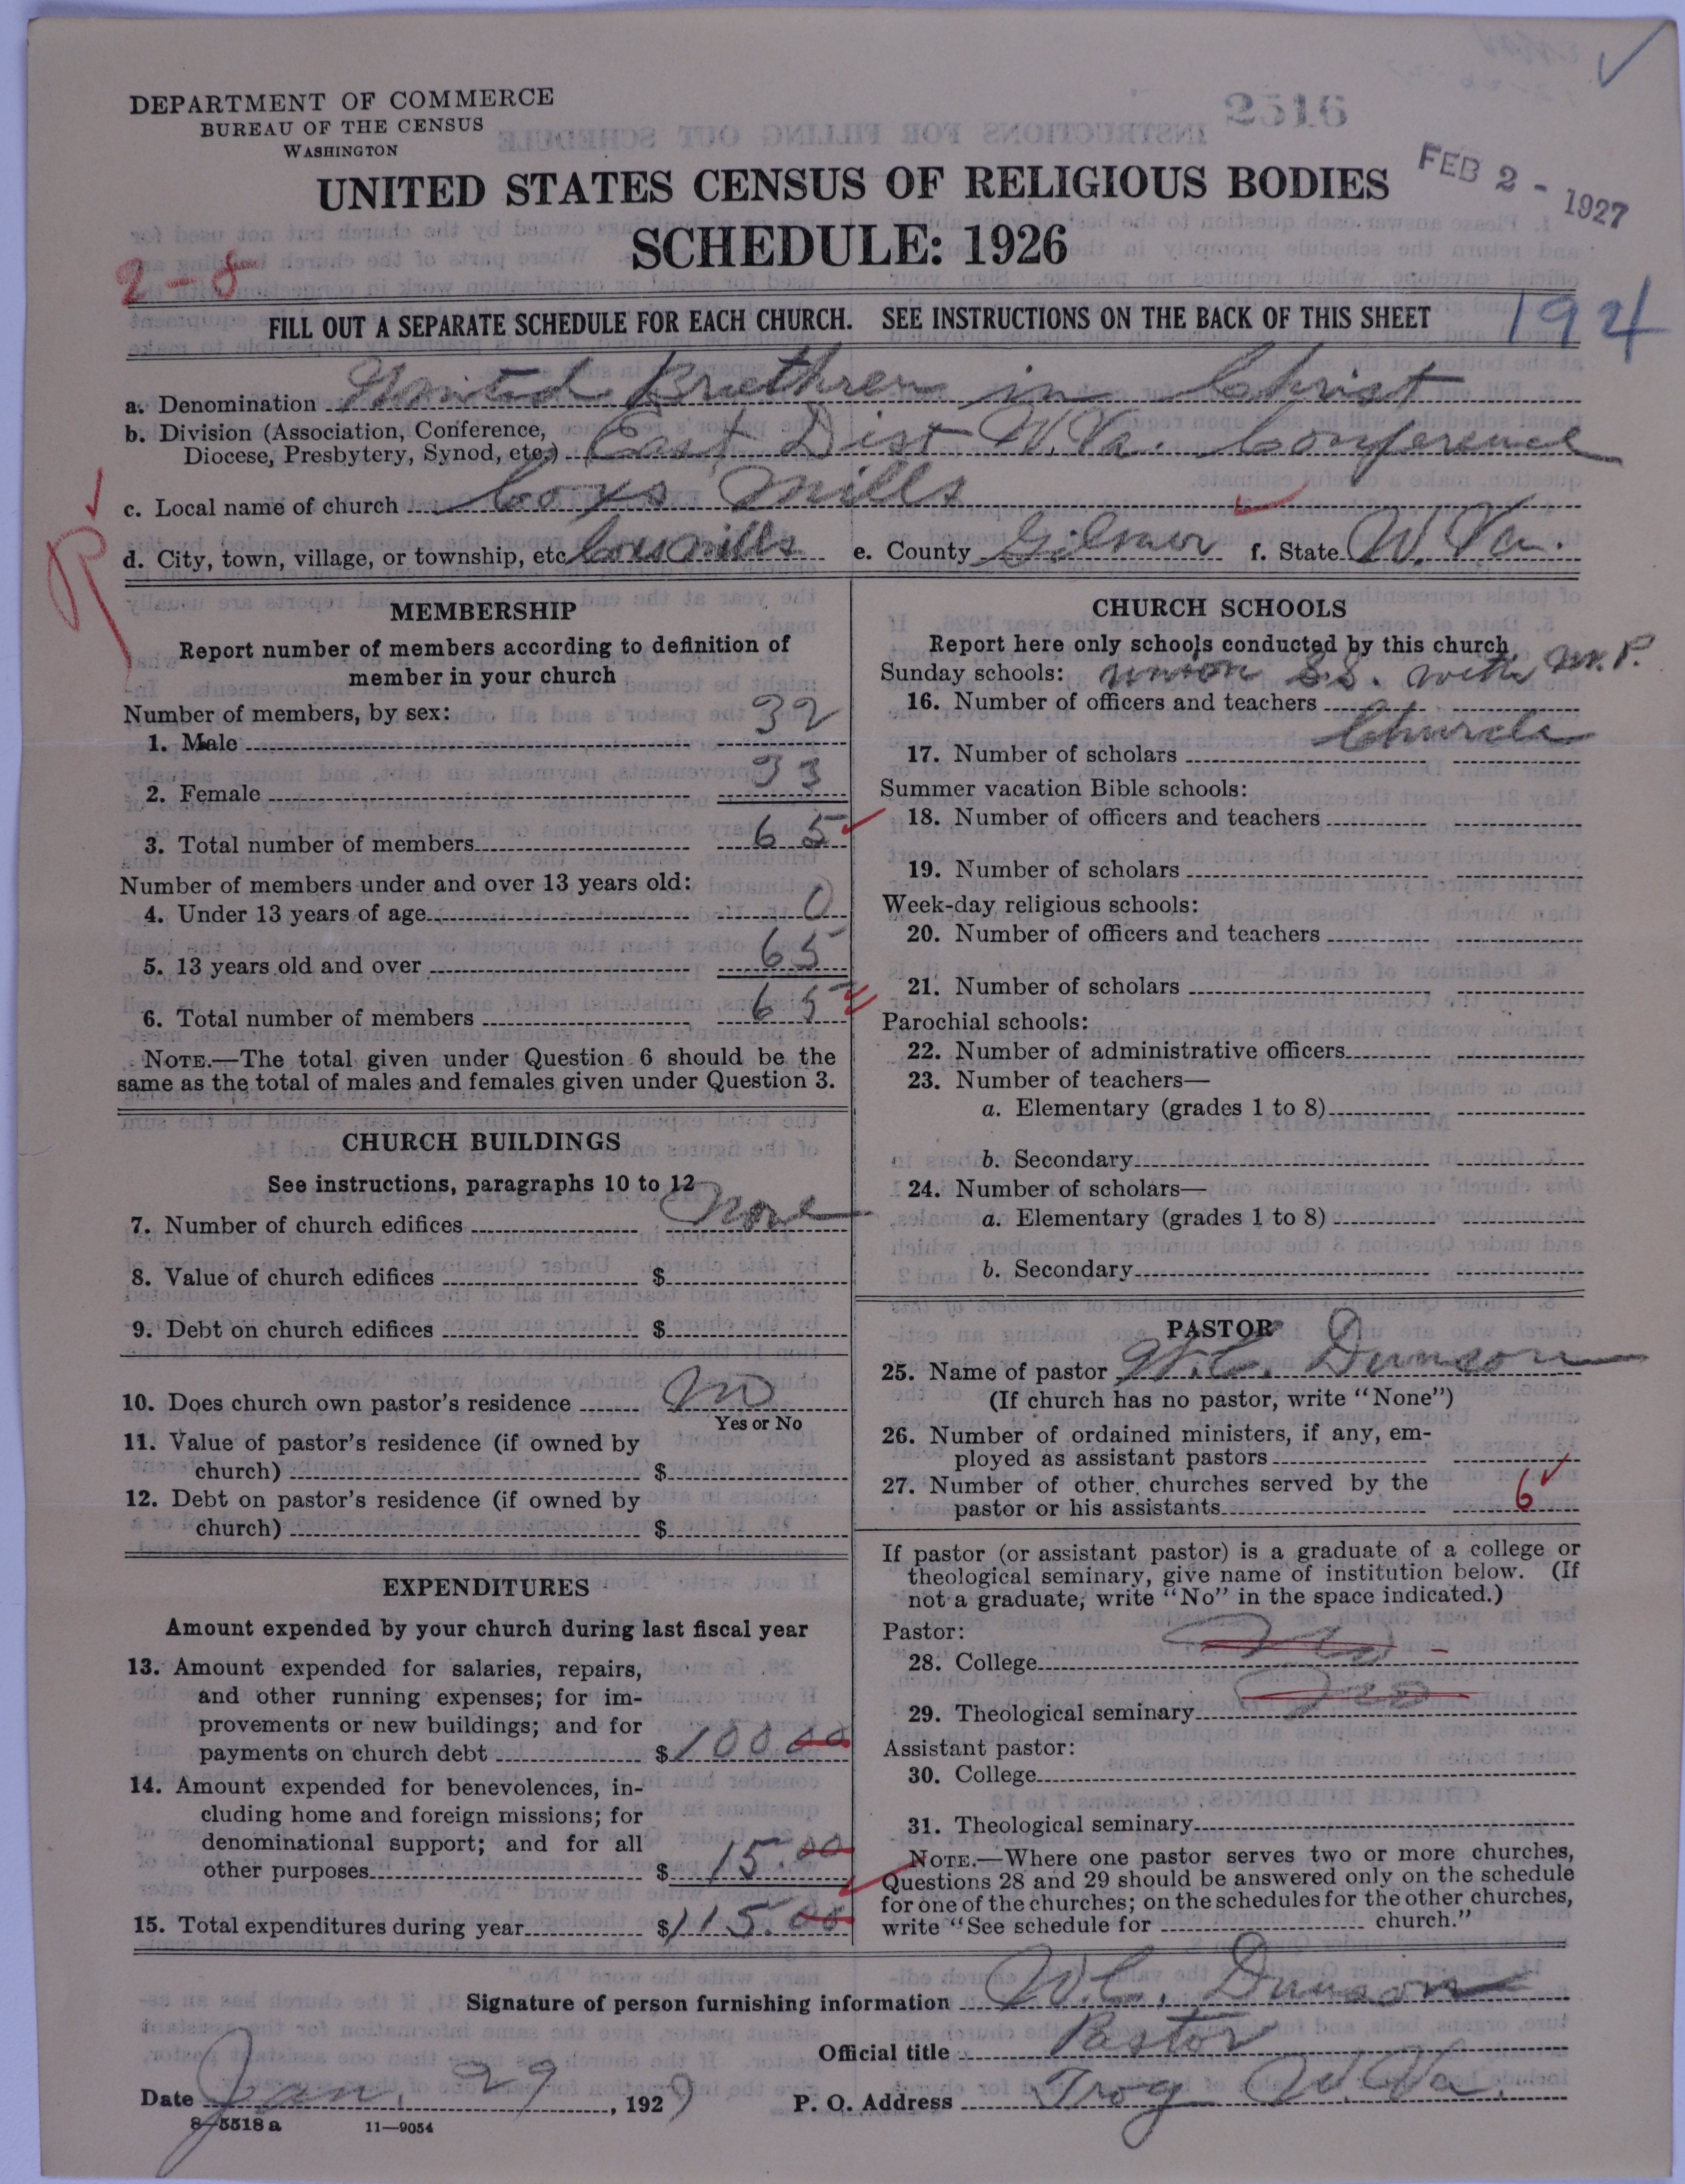 DEPARTMENT OF COMMERCE
BUREAU OF THE CENSUS
WASHINGTON
2516
UNITED STATES CENSUS OF RELIGIOUS BODIES
FEB 2 - 1927
SCHEDULE: 1926
2-8
FILL OUT A SEPARATE SCHEDULE FOR EACH CHURCH. SEE INSTRUCTIONS ON THE BACK OF THIS SHEET
194
a. Denomination United Bruethren in Christ
b. Division (Association, Conference, Diocese, Presbytery, Synod, etc.) East Dist W.Va. Conference
c. Local name of church Coxs Mills
d. City, town, village, or township, etc Coxs mills e. County Gilmer f. State W. Va.
R
MEMBERSHIP
Report number of members according to definition of
member in your church
Number of members, by sex:
1. Male 32
2. Female 33
3. Total number of members 65
Number of members under and over 13 years old:
4. Under 13 years of age 0
5. 13 years old and over 65
6. Total number of members 65
NOTE.—The total given under Question 6 should be the
same as the total of males and females given under Question 3.
CHURCH BUILDINGS
See instructions, paragraphs 10 to 12
7. Number of church edifices None
8. Value of church edifices $
9. Debt on church edifices $
10. Does church own pastor's residence No
Yes or No
11. Value of pastor's residence (if owned by
church) $
12. Debt on pastor's residence (if owned by
church) $
EXPENDITURES
Amount expended by your church during last fiscal year
13. Amount expended for salaries, repairs,
and other running expenses; for im-
provements or new buildings; and for
payments on church debt $100.00
14. Amount expended for benevolences, in-
cluding home and foreign missions; for
denominational support; and for all
other purposes $15.00
15. Total expenditures during year $115.00
CHURCH SCHOOLS
Report here only schools conducted by this church
Sunday schools: Union S.S. with M.P.
16. Number of officers and teachers
Church
17. Number of scholars
Summer vacation Bible schools:
18. Number of officers and teachers
19. Number of scholars
Week-day religious schools:
20. Number of officers and teachers
21. Number of scholars
Parochial schools:
22. Number of administrative officers
23. Number of teachers—
a. Elementary (grades 1 to 8)
b. Secondary
24. Number of scholars—
a. Elementary (grades 1 to 8)
b. Secondary
PASTOR
25. Name of pastor W.C. Dunson
(If church has no pastor, write "None")
26. Number of ordained ministers, if any, em-
ployed as assistant pastors
27. Number of other churches served by the
pastor or his assistants 6
If pastor (or assistant pastor) is a graduate of a college or
theological seminary, give name of institution below. (If
not a graduate, write "No" in the space indicated.)
Pastor:
28. College No
29. Theological seminary No
Assistant pastor:
30. College
31. Theological seminary
NOTE.—Where one pastor serves two or more churches,
Questions 28 and 29 should be answered only on the schedule
for one of the churches; on the schedules for the other churches,
write "See schedule for church."
Signature of person furnishing information W.C. Dunson
Official title Pastor
Date Jan. 29, 192 P. O. Address Troy W.Va.
8-5518 a 11-9054